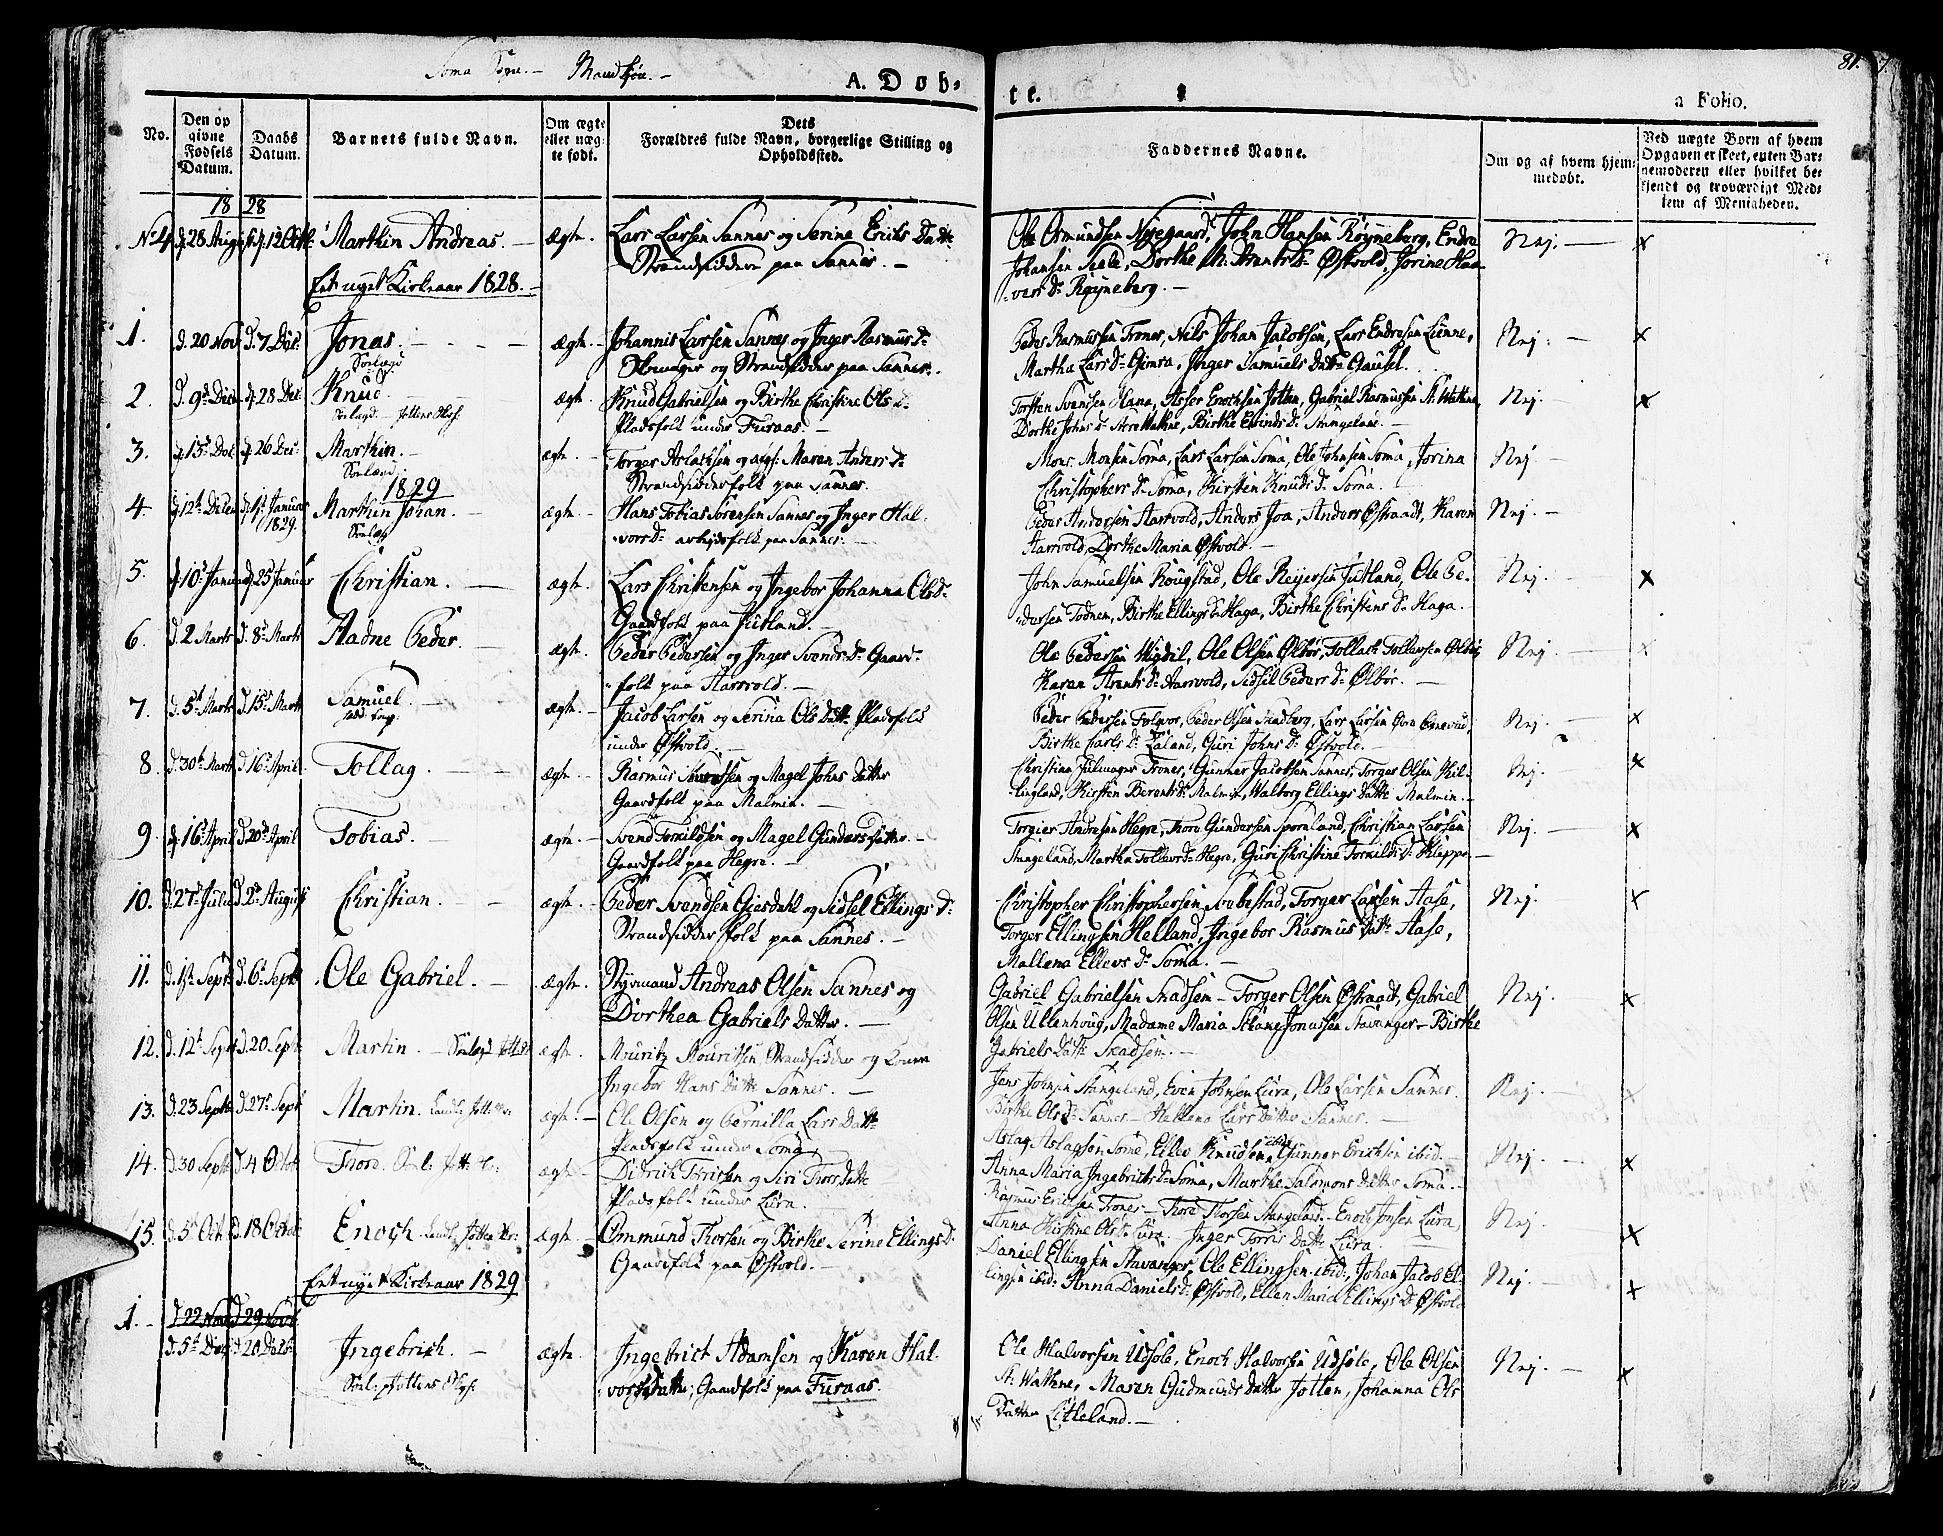 Soma Sogn. — Mandkjøn. —
A. Døb-
te.
81.
a Folio.
No.
Den op
givne
Fødsels
Datum.
Daabs
Datum.
Barnets fulde Navn.
Om ægte
eller uæg-
te født.
Dets
Forældres fulde Navn, borgerlige Stilling og
Opholdssted.
Faddernes Navne.
Om og af hvem hjem-
medøbt.
Ved uægte Børn af hvem
Opgaven er skeet, enten Bar-
nemoderen eller hvilket be-
kjendt og troværdigt Med-
lem af Menigheden.
1828
No 4. d. 28 Aug d. 12 Octb. Marthin Andreas. — Ægte. Lars Larsen Sannes og Serine Eriks Datt.
Strandsiddere paa Sannes. —
Ole Osmundsen Nyegaard, John Hansen Røyneberg, Endre
Johansen, Dorthe M. Østvold, Jorine Haa-
vars Dr Røyneberg. —
Nej. — x
Endt nyet Kirkeaar 1828. —
1. d. 20 Nov d. 7 Dec: Jonas. — Ægte. — Johannis Larsen Sannes og Inger Rasmus Dr
Skomager og Strandsidder paa Sannes.
Peder Rasmussen Trones, Nils Johan Jacobsen, Lars Endresen Lienne,
Martha Lars Dr Gimra, Inger Samuels Datter Gausel.
Nej. — x
2. d. 9de Decem d. 28 Dec Knud. Ægte. Knud Gabrielsen og Birthe Christine Ols Dr
Pladsfolk under Furaas. —
Torsten Svendsen Hana, Asser Enochsen Jotten, Gabriel Rasmussen St. Wathne,
Dorthe Johns Dr Store Wathne, Birthe Eivinds Dr Stangeland. —
Nej. — x
3. d. 13de Dec d. 26 Dec: Marthin. — Ægte. — Torger Aslachsen og Maren Anders Dr
Strandsidderfolk paa Sannes.
Mons Monsen Soma, Lars Larsen Soma, Ole Johnsen Soma, Jorina
Christophers Dr Soma, Kirsten Knuds Dr Soma.
Nej —
1829
4. d. 12te Decem d. 1ste Januar
1829.
Marthin Johan. — Ægte. — Hans Tobias Sørensen Sannes og Inger Hal-
vors Dr arbeidsfolk paa Sannes. —
Peder Andersen Aarvold, Anders Joa, Anders Østraadt, Karen
Aarvold, Dorthe Maria Østvold. —
Nej. —
5. d. 10de Januar d. 25 Januar Christian. — Ægte. Lars Christensen og Ingebor Johanna Ols Dr
Gaardfolk paa Jutland. —
John Samuelsen Rougstad, Ole Reiersen Jutland, Ole Pe-
dersen Todnem, Birthe Ellings Dr Haga, Birthe Christens Dr Haga.
Nej. — x
6. d. 2 Marts d. 8de Marts Aadne Peder. — Ægte. Peder Pedersen og Inger Svends Dr Gaard-
folk paa Aarvold. —
Ole Pedersen Wigdil, Ole Olsen Ølbør, Tollach Tollevsen Ølbør,
Karen Arents Dr Aarvold, Sidsel Peders Dr Ølbør. —
Nej. — x
7. d. 5te Marts d. 15de Marts Samuel. Ægte. — Jacob Larsen og Serina Ols Datt. Pladsfolk
under Østvold. —
Peder Pedersen Folqvor, Peder Olsen Skadberg, Lars Larsen
Birthe Carls Dr Zaland, Guri Johns Dr Østvold. —
Nej. — x
8. d. 30te Marts d. 16de April Tollag. — Ægte. — Rasmus Sivertsen og Magel Johns Datter
Gaardfolk paa Malmin. —
Christian Julmager Trones, Gunner Jacobsen Sannes, Torger Olsen Kil-
lingland, Kirsten Berents Dr Malmin, Walborg Ellings Datt. Malmin. —
Nej. x
9. d. 16de April d. 20de April Tobias. — Ægte. — Svend Torkildsen og Magel Gunders Datter. —
Gaardfolk paa Hegre. —
Torgier Andresen Hegre, Thore Gundersen Spornland, Christian Larsen
Stangeland, Martha Tollevs Dr Hegre, Guri Christine Torkilds Dr Kleppe —
Nej. — x
10. d. 27de Julii d. 2de August Christian. — Ægte. — Peder Svendsen Giesdahl og Sidsel Ellings Dr
Strandsidderfolk paa Sannes. —
Christopher Christophersen, Torger Larsen Aase,
Torger Ellingsen Helland, Ingebor Rasmus Datt. Aase,
Mallena Ellevs Dr Soma. —
Nej. x
11. d. 1ste Sept d. 6te Sept Ole Gabriel. — Ægte. — Styrmand Andreas Olsen Sannes og
Dorthea Gabriels Datter. —
Gabriel Gabrielsen Skadsem — Torger Olsen Østraadt, Gabriel
Olsen Ullenhoug, Madame Maria Jonassen Stavanger — Birthe
Gabriels Datt. Skadsem. —
Nej. x
12. d. 12te Sept d. 20 Sept Martin. — Ægte. Mouritz Mouritsen Strandsidder og Kone
Ingebor Hans Datt. Sannes. —
Jens Johnsen Stangeland, Even Johnsen Lura, Ole Larsen Sannes.
Birthe Ols Dr Sannes — Lars Datter Sannes. —
Nej. — x
13. d. 23 Sept d. 27de Sept Martin. Ægte. — Ole Olsen og Pernilla Lars Datt.
Pladsfolk under Soma
Aslag Aslagsen Some, Ellev Knudsen ibid Gunner Erichsen ibid.
Anna Maria Ingebrichts Dr Soma, Marthe Salomons Datter Soma. —
Nej. — x
14. d. 30 Sept d. 4 Octob Thore. Ægte — Didrich Torrisen og Siri Thors Datt.
Pladsfolk under Lura. —
Rasmus Erichsen Trones — Thore Thorsen Stangeland. — Enoch Jonsen Lura,
Anna Kirstine Ols Dr Lura. Inger Torris Datt. Lura. —
Nej. x
15. d. 5te Oct. d. 18 Octob Enoch. Ægte — Ommund Thorsen og Birthe Serine Ellings Dr
Gaardfolk paa Østvold. —
Daniel Ellingsen Stavanger, Ole Ellingsen ibid:, Johan Jacob El-
lingsen ibid: Anna Daniels Dr Østvold, Ellen Maria Ellings Dr Østvold
Nej. — x
Endt nyet Kirkeaar 1829
1. — d 22 Nov d 29 Novb.
d. 5te Dec d 20 Decbr Ingebrich. — Ægte. Ingebrict Adamsen og Karen Hal-
vors Datter, Gaardfolk paa Furaas.
Ole Halvorsen Udsole, Enoch Halvorsen Udsole, Ole Olsen
St. Wathne, Maren Gudmunds Datter Jotten, Johanna Ols
Datter Litleland. —
Nej. — x